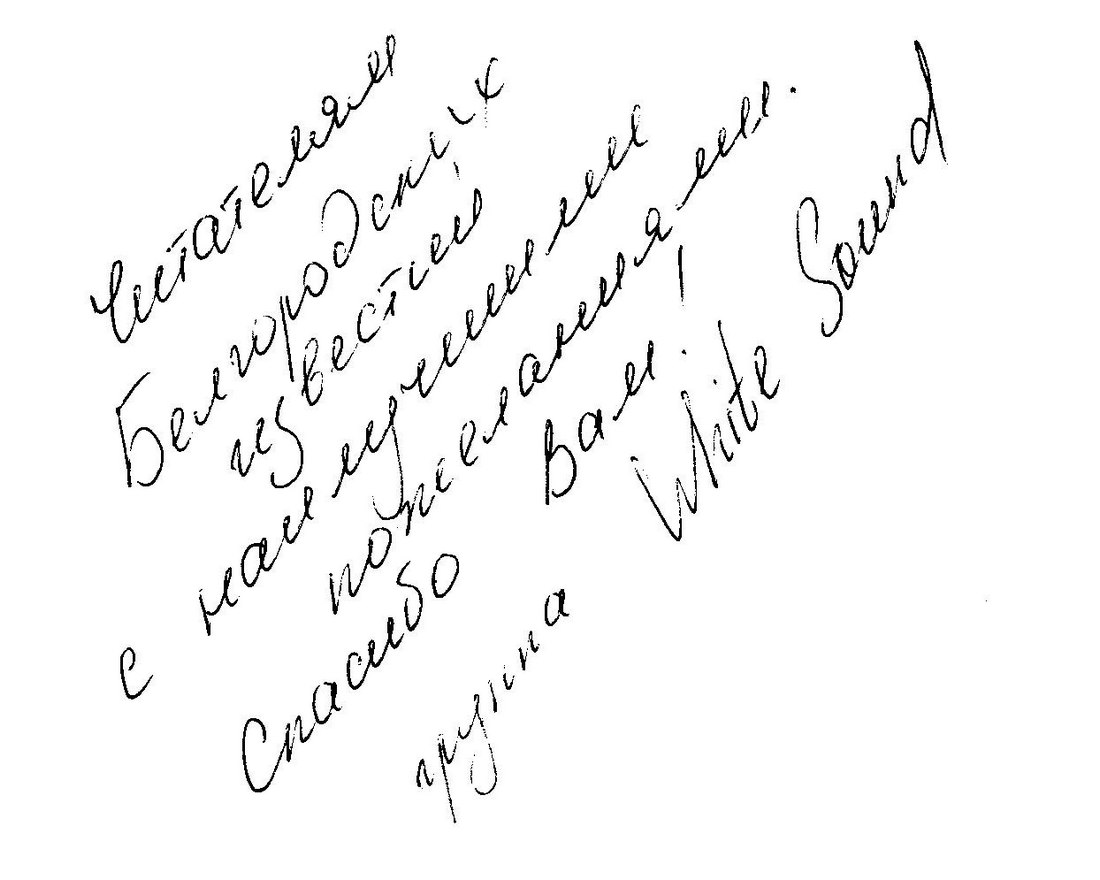 Читателям
Белгородских
известий
с наилучшими
пожеланиями.
Спасибо Вам!
группа White Sound